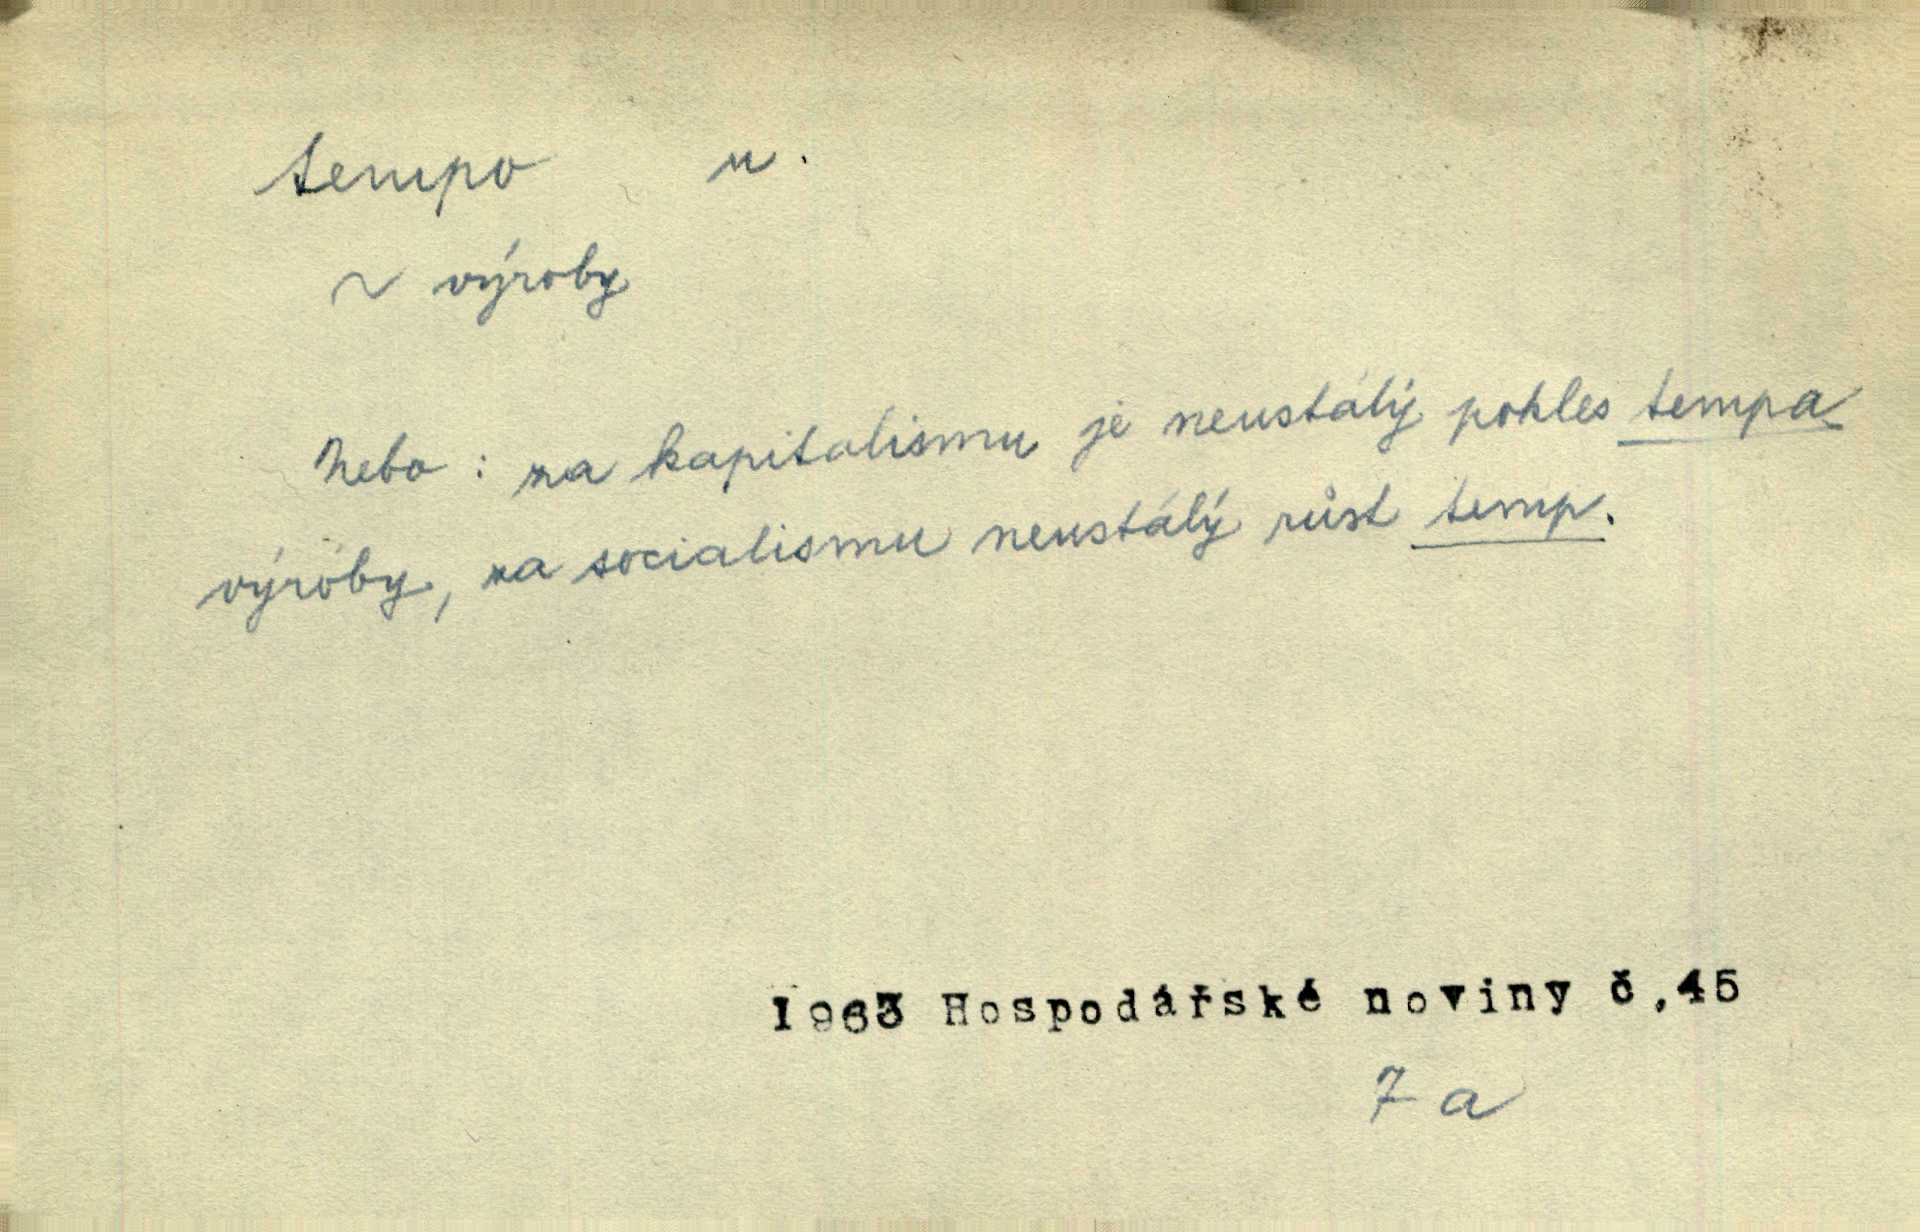 tempo n.
~ výroby
Nebo : za kapitalismu je neustálý pokles tempa
výroby, za socialismu neustálý růst temp.
1963 Hospodářské noviny č.45
7 a